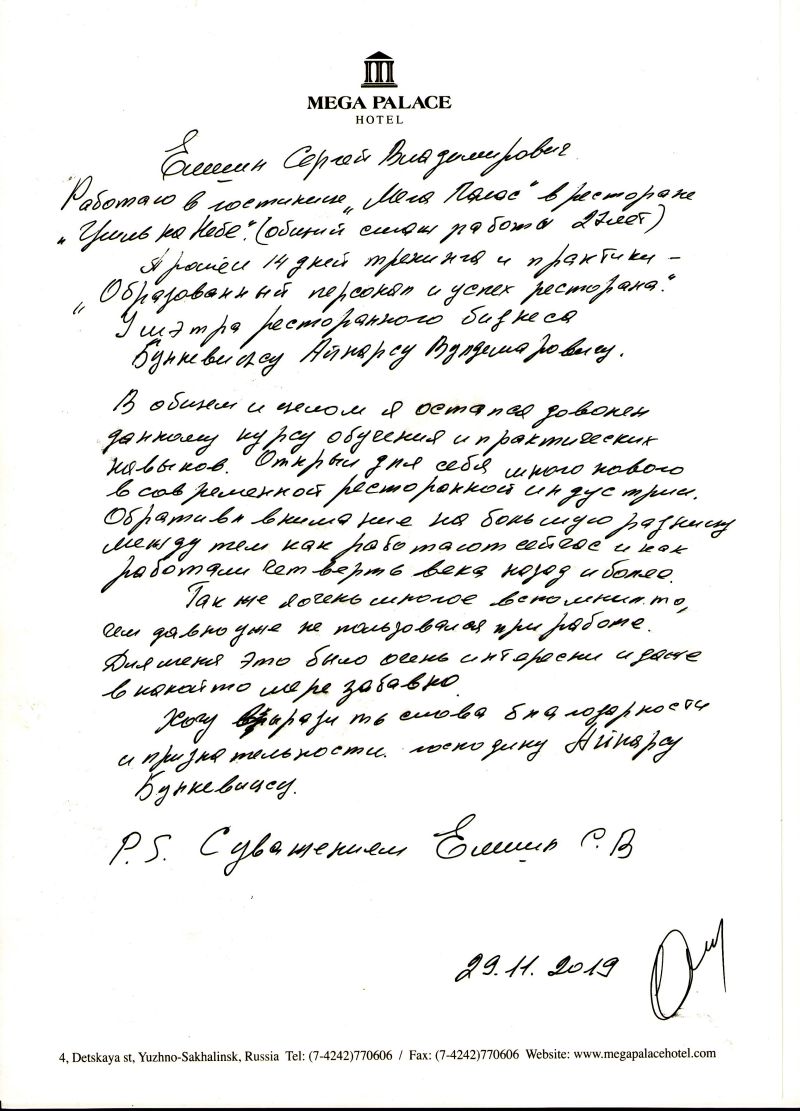 MEGA PALACE
HOTEL
Сергей Владимирович
Работаю в гостинице „Мега Палас" в ресторане
на Небе". (общий стаж работы 27лет)
Я прошёл 14 дней тренинга и практики –
„Образованный персонал и успех ресторана."
У мэтра ресторанного бизнеса
Бункевичсу Айнарсу Вулдемаровичу.
В общем и целом я остался доволен
данному курсу обучения и практических
навыков. Открыл для себя много нового
в современной ресторанной индустрии.
Обратил внимание на большую разницу
между тем как работают сейчас и как
работали четверть века назад и более.
Так же я очень многое вспомнил то,
чем давно уже не пользовался при работе.
Для меня это было очень интересно и даже
в какой то мере забавно.
Хочу выразить слова благодарности
и признательности господину Айнарсу
P.S. С уважением С.В
29.11.2019
4, Detskaya st, Yuzhno-Sakhalinsk, Russia Tel: (7-4242)770606 / Fax: (7-4242)770606 Website: www.megapalacehotel.com